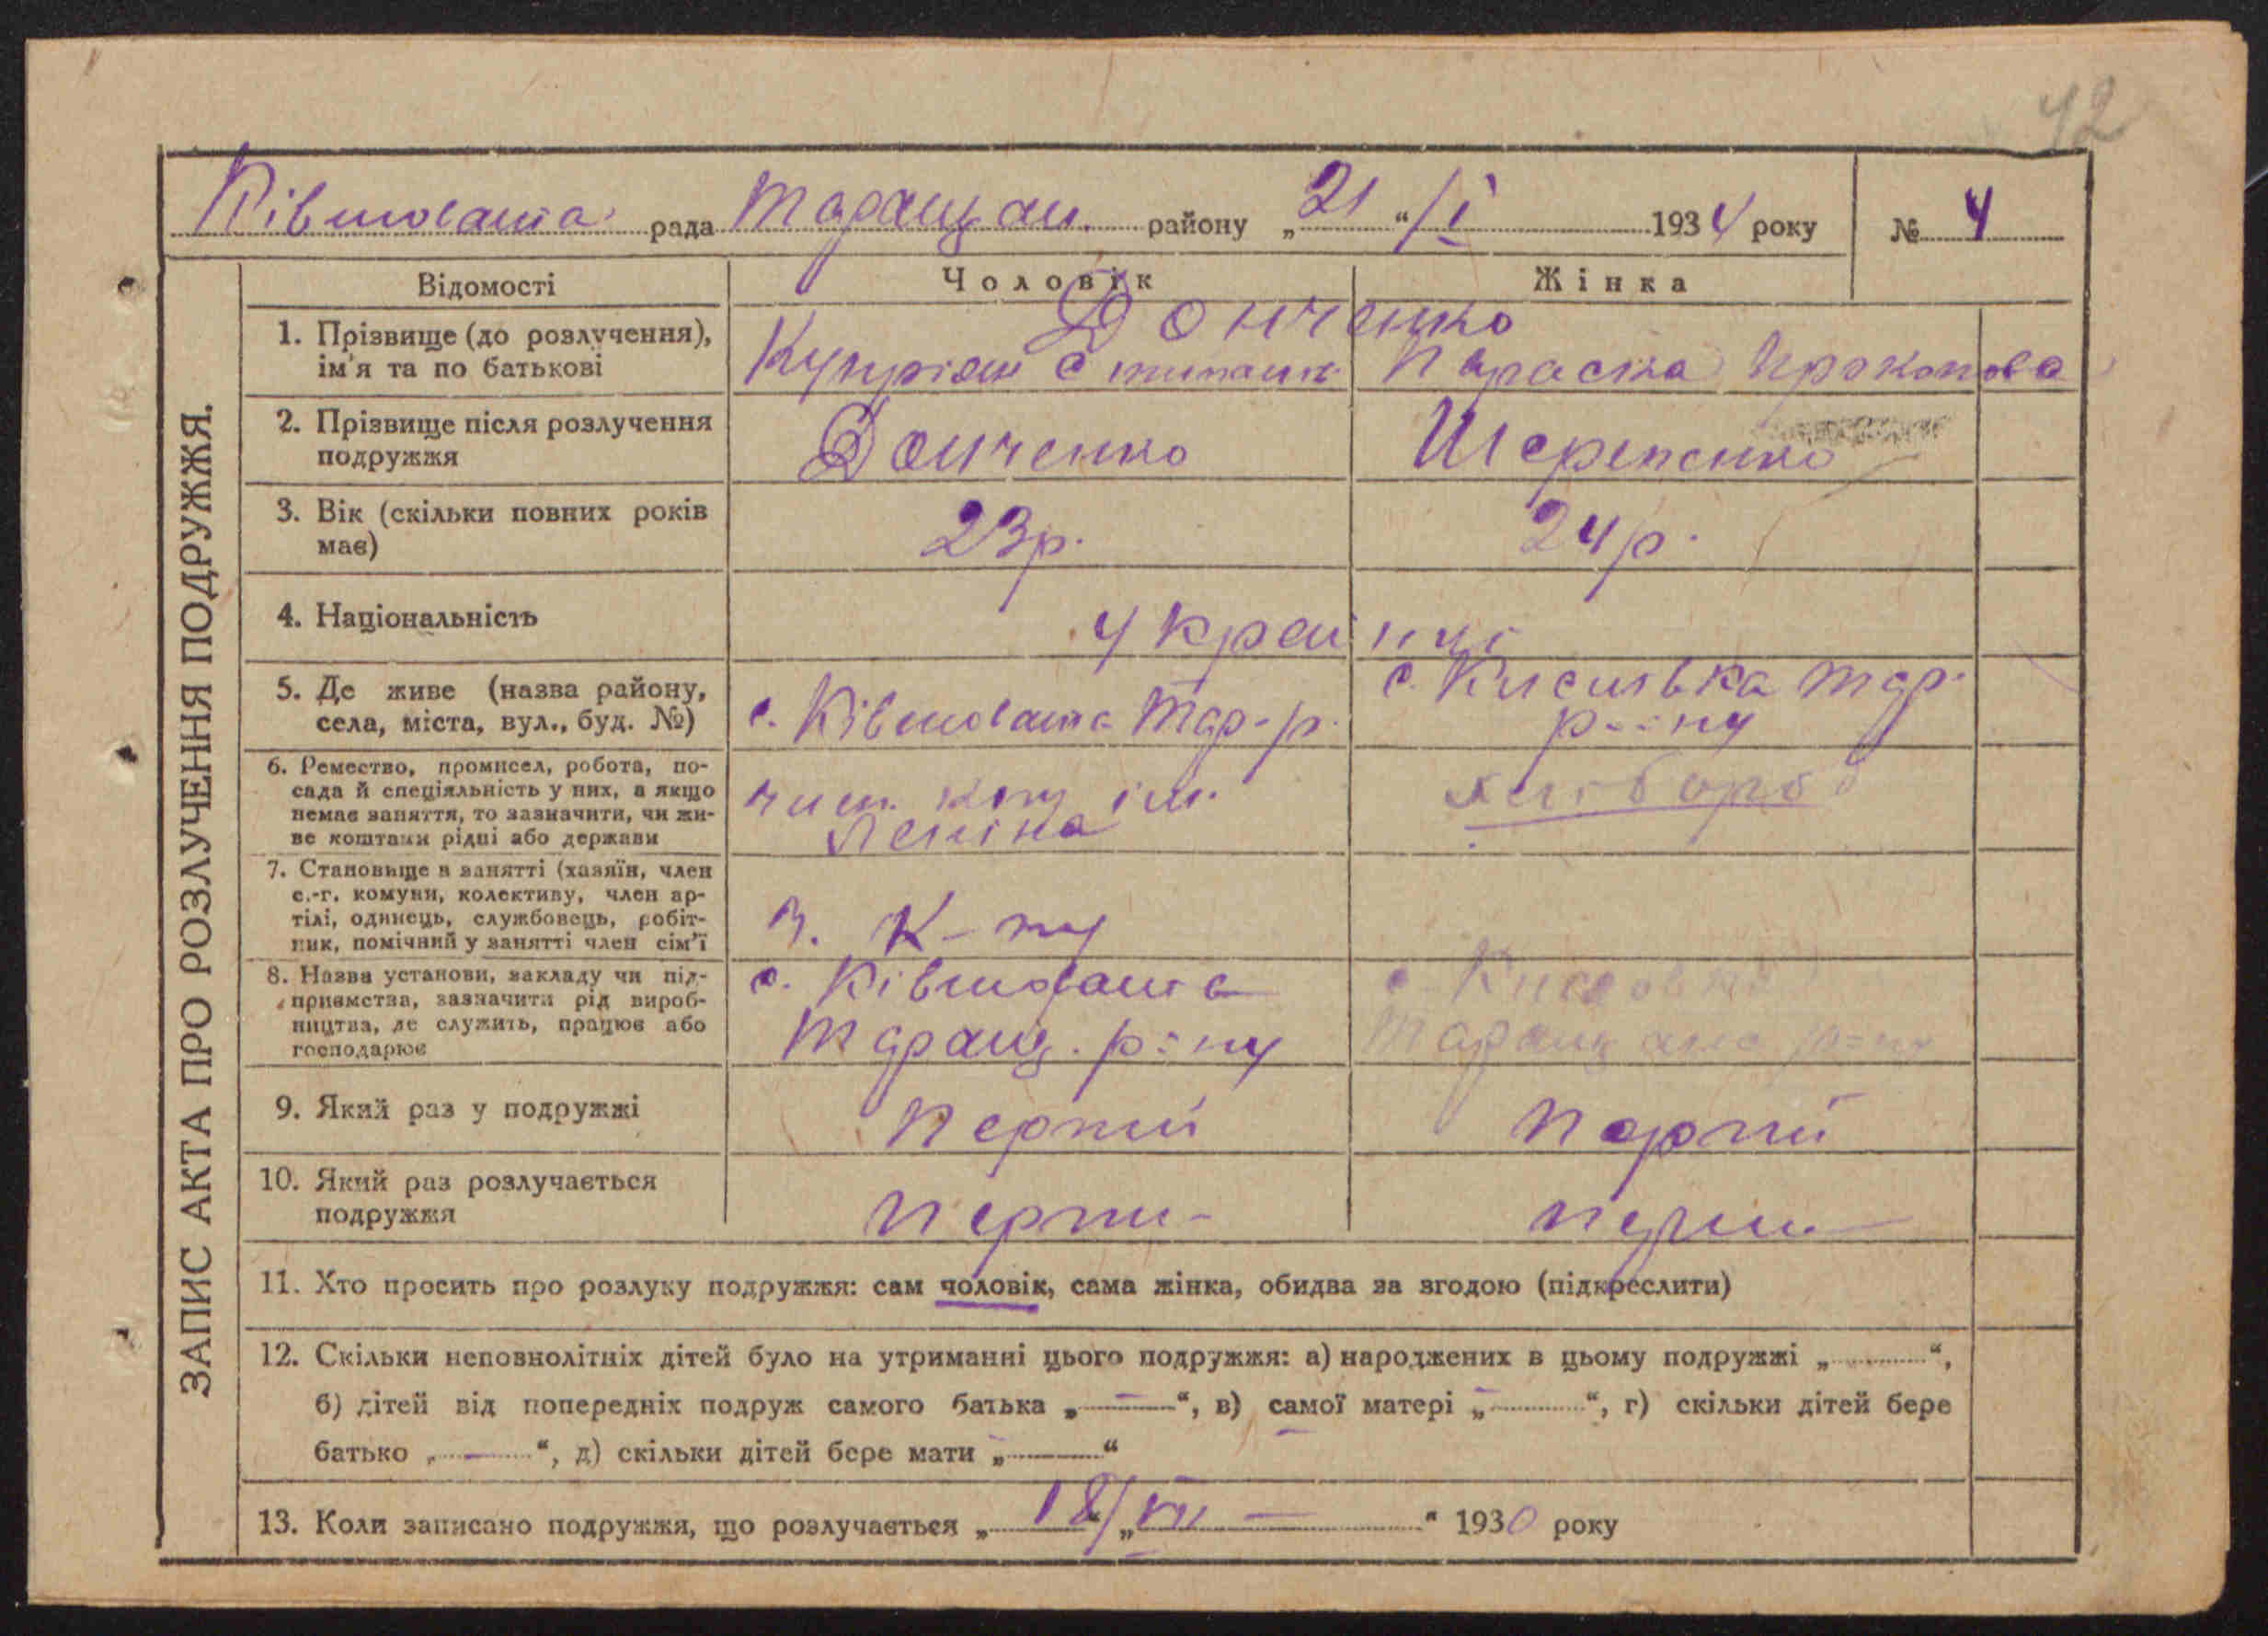 42
Ківшовата рада Таращан. району „21“/I 1934 року № 4
ЗАПИС АКТА ПРО РОЗЛУЧЕННЯ ПОДРУЖЖЯ.
Відомості Чоловік Жінка
Донченко
1. Прізвище (до розлучення),
ім'я та по батькові
Купріян Параска Прокопова
2. Прізвище після розлучення
подружжя
Донченко
3. Вік (скільки повних років
має)
23р. 24р.
4. Національність
Українці
5. Де живе (назва району,
села, міста, вул., буд. №)
с. Ківшовата Тар-р. с. Кислівка Тар.
р=ну
6. Ремество, промисел, робота, по-
сада й спеціяльність у них, а якщо
немає заняття, то зазначити, чи жи-
ве коштами рідні або держави
член. ім.
Леніна
хлібороб
7. Становище в занятті (хазяїн, член
с.-г. комуни, колективу, член ар-
тілі, одинець, службовець, робіт-
ник, помічний у занятті член сім'ї
8. Назва установи, закладу чи під-
приємства, зазначити рід вироб-
ництва, де служить, працює або
господарює
с. Ківшовата
Таращ. р=ну
9. Який раз у подружжі
Перший Перший
10. Який раз розлучається
подружжя
перши- перши-
11. Хто просить про розлуку подружжя: сам чоловік, сама жінка, обидва за згодою (підкреслити)
12. Скільки неповнолітніх дітей було на утриманні цього подружжя: а) народжених в цьому подружжі „ “,
б) дітей від попередніх подруж самого батька „—“, в) самої матері „—“, г) скільки дітей бере
батько „—“, д) скільки дітей бере мати „—“
13. Коли записано подружжя, що розлучається „18/„VII — “ 1930 року